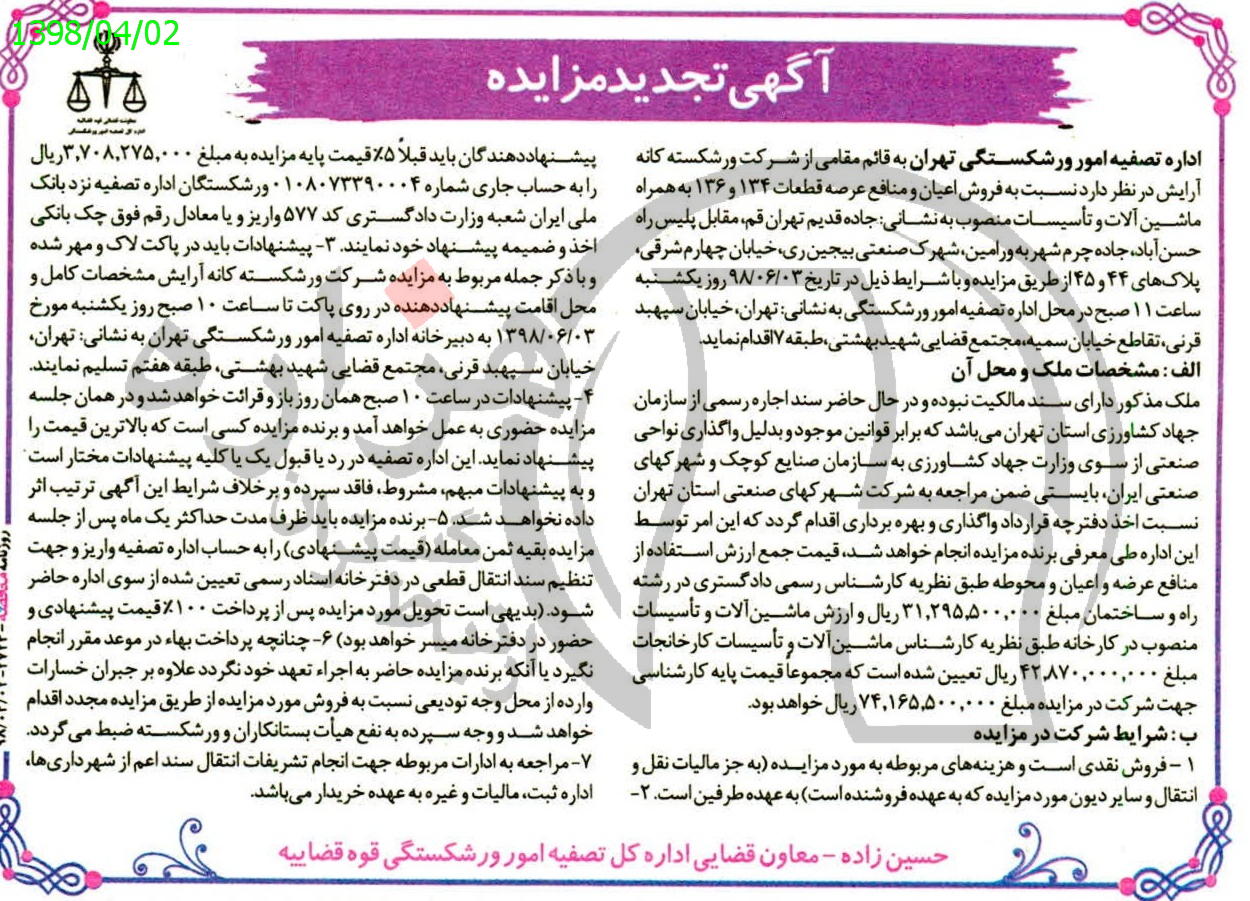 1398/04/02
آگهی تجدید مزایده
معاونت قضائی قوه قضائیه
اداره کل تصفیه امور ورشکستگی
اداره تصفیه امور ورشکستگی تهران به قائم مقامی از شرکت ورشکسته کانه
آرایش در نظر دارد نسبت به فروش اعیان و منافع عرصه قطعات ۱۳۴ و ۱۳۶ به همراه
ماشین آلات و تأسیسات منصوب به نشانی: جاده قدیم تهران قم، مقابل پلیس راه
حسن آباد، جاده چرم شهر به ورامین، شهرک صنعتی بیجین ری، خیابان چهارم شرقی،
پلاک‌های ۴۴ و ۴۵ از طریق مزایده و با شرایط ذیل در تاریخ ۹۸/۰۶/۰۳ روز یکشنبه
ساعت ۱۱ صبح در محل اداره تصفیه امور ورشکستگی به نشانی: تهران، خیابان سپهبد
قرنی، تقاطع خیابان سمیه، مجتمع قضایی شهید بهشتی، طبقه ۷ اقدام نماید.
الف: مشخصات ملک و محل آن
ملک مذکور دارای سند مالکیت نبوده و در حال حاضر سند اجاره رسمی از سازمان
جهاد کشاورزی استان تهران می‌باشد که برابر قوانین موجود و بدلیل واگذاری نواحی
صنعتی از سوی وزارت جهاد کشاورزی به سازمان صنایع کوچک و شهرکهای
صنعتی ایران، بایستی ضمن مراجعه به شرکت شهرکهای صنعتی استان تهران
نسبت اخذ دفترچه قرارداد واگذاری و بهره برداری اقدام گردد که این امر توسط
این اداره طی معرفی برنده مزایده انجام خواهد شد، قیمت جمع ارزش استفاده از
منافع عرضه و اعیان و محوطه طبق نظریه کارشناس رسمی دادگستری در رشته
راه و ساختمان مبلغ ۳۱,۲۹۵,۵۰۰,۰۰۰ ریال و ارزش ماشین‌آلات و تأسیسات
منصوب در کارخانه طبق نظریه کارشناس ماشین‌آلات و تأسیسات کارخانجات
مبلغ ۴۲,۸۷۰,۰۰۰,۰۰۰ ریال تعیین شده است که مجموعاً قیمت پایه کارشناسی
جهت شرکت در مزایده مبلغ ۷۴,۱۶۵,۵۰۰,۰۰۰ ریال خواهد بود.
ب: شرایط شرکت در مزایده
۱ - فروش نقدی است و هزینه‌های مربوطه به مورد مزایده (به جز مالیات نقل و
انتقال و سایر دیون مورد مزایده که به عهده فروشنده است) به عهده طرفین است. ۲-
پیشنهاددهندگان باید قبلاً ۵٪ قیمت پایه مزایده به مبلغ ۳,۷۰۸,۲۷۵,۰۰۰ ریال
را به حساب جاری شماره ۰۱۰۸۰۷۳۳۹۰۰۰۴ ورشکستگان اداره تصفیه نزد بانک
ملی ایران شعبه وزارت دادگستری کد ۵۷۷ واریز و یا معادل رقم فوق چک بانکی
اخذ و ضمیمه پیشنهاد خود نمایند. ۳- پیشنهادات باید در پاکت لاک و مهر شده
و با ذکر جمله مربوط به مزایده شرکت ورشکسته کانه آرایش مشخصات کامل و
محل اقامت پیشنهاددهنده در روی پاکت تا ساعت ۱۰ صبح روز یکشنبه مورخ
۱۳۹۸/۰۶/۰۳ به دبیرخانه اداره تصفیه امور ورشکستگی تهران به نشانی: تهران،
خیابان سپهبد قرنی، مجتمع قضایی شهید بهشتی، طبقه هفتم تسلیم نمایند.
۴- پیشنهادات در ساعت ۱۰ صبح همان روز باز و قرائت خواهد شد و در همان جلسه
مزایده حضوری به عمل خواهد آمد و برنده مزایده کسی است که بالاترین قیمت را
پیشنهاد نماید. این اداره تصفیه در رد یا قبول یک یا کلیه پیشنهادات مختار است
و به پیشنهادات مبهم، مشروط، فاقد سپرده و برخلاف شرایط این آگهی ترتیب اثر
داده نخواهد شد. ۵- برنده مزایده باید ظرف مدت حداکثر یک ماه پس از جلسه
مزایده بقیه ثمن معامله (قیمت پیشنهادی) را به حساب اداره تصفیه واریز و جهت
تنظیم سند انتقال قطعی در دفترخانه اسناد رسمی تعیین شده از سوی اداره حاضر
شود. (بدیهی است تحویل مورد مزایده پس از پرداخت ۱۰۰٪ قیمت پیشنهادی و
حضور در دفترخانه میسر خواهد بود) ۶- چنانچه پرداخت بهاء در موعد مقرر انجام
نگیرد یا آنکه برنده مزایده حاضر به اجراء تعهد خود نگردد علاوه بر جبران خسارات
وارده از محل وجه تودیعی نسبت به فروش مورد مزایده از طریق مزایده مجدد اقدام
خواهد شد و وجه سپرده به نفع هیأت بستانکاران و ورشکسته ضبط می گردد.
۷- مراجعه به ادارات مربوطه جهت انجام تشریفات انتقال سند اعم از شهرداری‌ها،
اداره ثبت، مالیات و غیره به عهده خریدار می‌باشد.
حسین زاده - معاون قضایی اداره کل تصفیه امور ورشکستگی قوه قضاییه